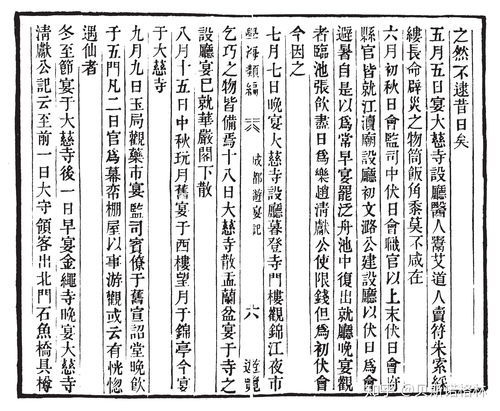 之然不逮昔日矣
五月五日宴大慈寺設廳醫人鬻艾道人賣符朱索綵
縷長命辟災之物筒飯角黍莫不咸在
六月初伏日會監司中伏日會職官以上末伏日會府
縣官皆就江瀆廟設廳初文潞公建設廳以伏日爲會
避暑自是以爲常早宴罷泛舟池中復出就廳晚宴觀
者臨池張飲盡日爲樂趙清獻公使限錢但爲初伏會
今因之
七月七日晚宴大慈寺設廳暮登寺門樓觀錦江夜市
學海類編 成都遊宴記 六 遊覽
乞巧之物皆備焉十八日大慈寺散盂蘭盆宴于寺之
設廳宴已就華嚴閣下散
八月十五日中秋玩月舊宴于西樓望月于錦亭今宴
于大慈寺
九月九日玉局觀藥市宴監司賓僚于舊宣詔堂晚飲
于五門凡二日官爲幕帟棚屋以事游觀或云有恍惚
遇仙者
冬至節宴于大慈寺後一日早宴金繩寺晚宴大慈寺
清獻公記云至前一日太守領客出北門石魚橋具樽
知乎 @贝斯诺格林